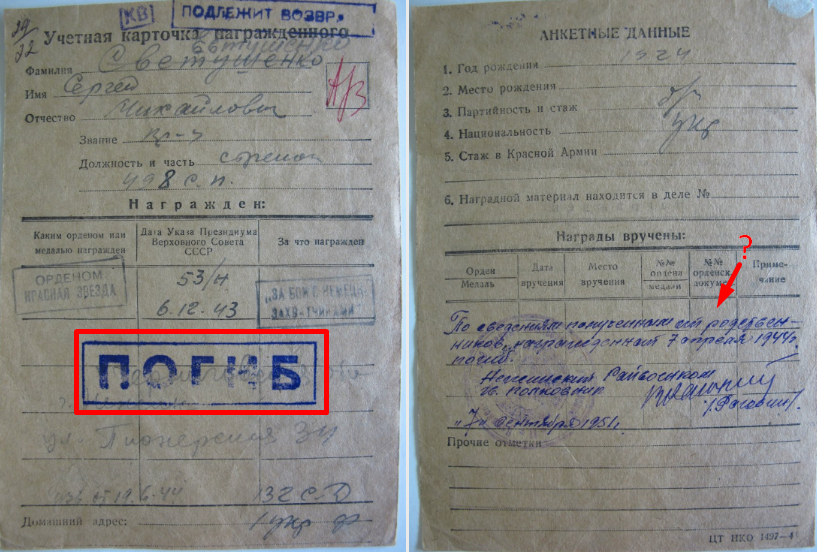 29/32
КВ
ПОДЛЕЖИТ ВОЗВР.
Учетная карточка награжденного
Евтушенко
Фамилия Светушенко
Имя Сергей
Отчество Михайлович
Звание кр-ц
Должность и часть стрелок
498 с.п.
Награжден:
Каким орденом или медалью награжден
Дата Указа Президиума Верховного Совета СССР
За что награжден
ОРДЕНОМ
КРАСНАЯ ЗВЕЗДА
53/н
6.12.43
"ЗА БОИ С НЕМЕЦК.
ЗАХВАТЧИКАМИ"
ПОГИБ
ул. Пионерская 34
от 19.6.44 132 с.д
Домашний адрес: 1 укр ф
АНКЕТНЫЕ ДАННЫЕ
1. Год рождения 1924
2. Место рождения
3. Партийность и стаж б/п
4. Национальность укр
5. Стаж в Красной Армии
6. Наградной материал находится в деле №
Награды вручены:
Орден Медаль
Дата вручения
Место вручения
№№ ордена медали
№№ орденск. докумен.
Примечание
?
По сведениям полученным от родствен-
ников, награжденный 7 апреля 1944г.
погиб.
Нежинский Райвоенком
гв. полковник
/Рогович/.
"7" сентября 1951г.
Прочие отметки
ЦТ НКО 1497—4